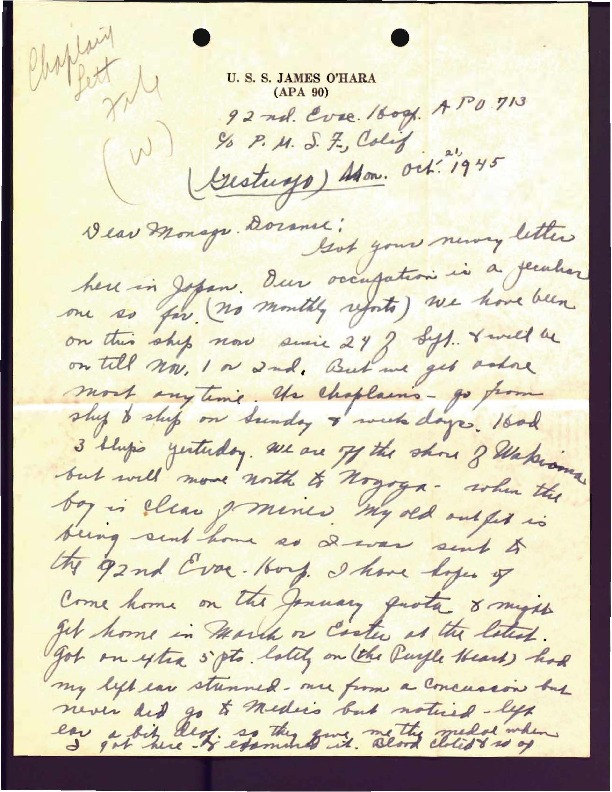 Chaplain
Lett
File
(W)
U. S. S. JAMES O'HARA
(APA 90)
92nd. Evac. Hosp. APO 713
c/o P. M. S. F., Calif
Mon. Oct. 21, 1945
Dear Monsgr.
Got your newsy letter
here in Japan. Our occupation is a peculiar
one so far. (No monthly reports) We have been
on this ship now since 24 of Sept. & will be
on till Nov. 1 or 2nd. But we get ashore
most anytime. Us chaplains - go from
ship to ship on Sunday & weekdays. Had
3 ships yesterday. We are off the shore of
but will move north to Nogoya - when the
bay is clear of mines My old outfit is
being sent home so I was sent to
the 92nd Evac. Hosp. I have hopes of
come home on the January quota & might
get home in March or Easter at the latest.
Got an extra 5 pts. lately on (the Purple Heart) had
my left ear stunned - once from a concussion but
never did go to Medics but noticed - left
ear a bit deaf. so they give me the medal when
I got here - & examined it. Blood